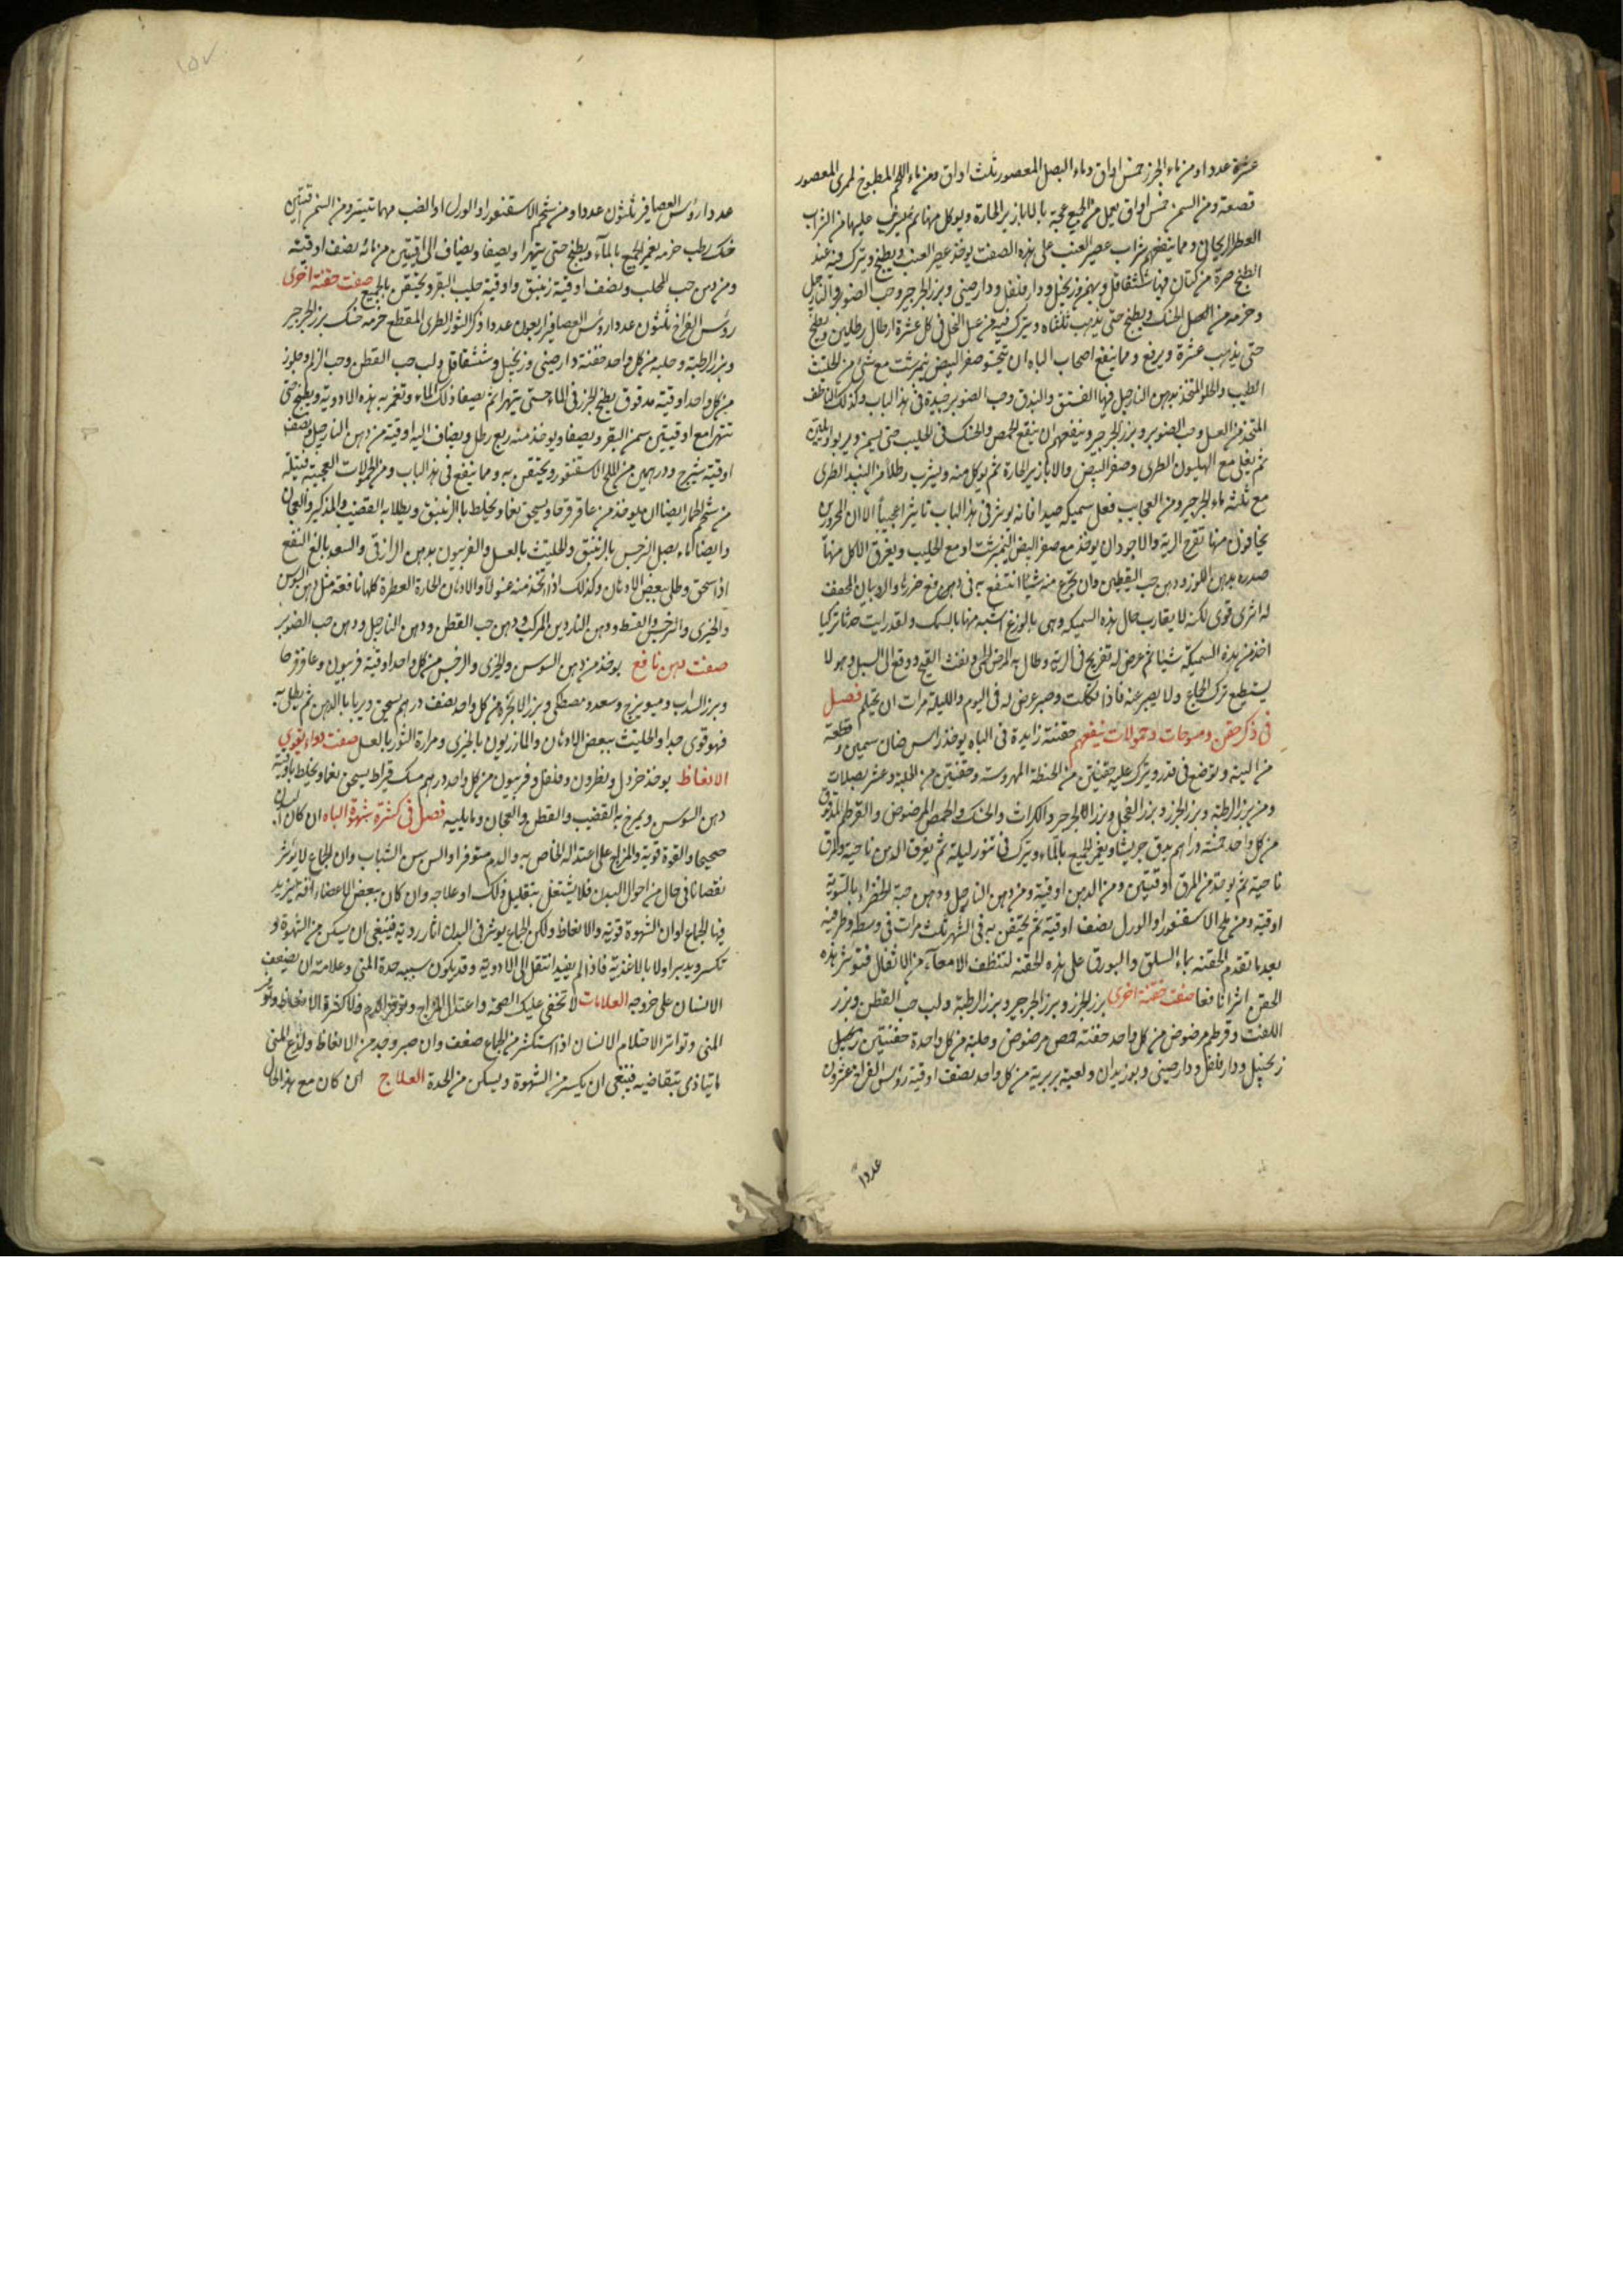 عشرة عددا ومن ماء الجزر خمس اواق وماء البصل المعصور ثلث اواق ومن ماء اللحم المطبوخ لمرى المعصور
قصعة ومن السمن خمس اواق يعمل من الجميع عجة بالابازير الحارة ويوكل منها ثم يشرب عليها من الشراب
العطر الريحانى ومما ينفعهم شراب عصير العنب على هذه الصفت يوخذ عصير العنب ويطبخ ويترك فيه عند
الطبخ صرة من كتان فيها شقاقل وبهمن وزنجبيل ودار فلفل ودارصينى وبزر الجرجير وحب الصنوبر والنارجيل
وحزمه من الحسك ويطبخ حتى يذهب ثلثاه ويترك فيه من عسل النحل فى كل عشرة ارطال رطلين ويطبخ
حتى يذهب عشرة ويرفع ومما ينفع اصحاب الباه ان يتحسو صفر البيض نيمرشت مع شئ من الحلتيت
الطيب والحلو المتخذ بدهن النارجيل فيها الفستق والبندق وحب الصنوبر جيدة فى هذا الباب وكذلك الناطف
المتخذ من العسل وحب الصنوبر وبزر الجرجير وينفعهم ان ينقع الحمص والحسك فى الحليب حتى يسمن ويربو
ثم يغلى مع الهليون الطرى وصفر البيض والابازير الحارة ثم يوكل منه ويشرب رطلا من النبيذ الطرى
مع ثلثه ماء الجرجير ومن العجايب فعل سميكه صيدا فانه يوثر فى هذا الباب تاثيرا عجيبا الا ان المحرورين
يخافون منها تقرح الرية والاجود ان يوخذ مع صفر البيض النيمرشت او مع الحليب ويغرق الاكل منها
صدره بدهن اللوز ودهن حب اليقطين وان تجرع منه شيئا انتفع به فى دفع ضررها والروبيان المجفف
له اثرى قوى لكنه لا يقارب حال هذه السميكه وهى بالوزغ اشبه منها بالسمك ولقد رايت حدثا تركيا
اخذ من هذه السميكة شيئا ثم عرض له تقريح فى الرية وطال به المرض الحمى ونفث القيح ووقع الى السل وهو لا
يستطيع ترك الجماع ولا يصبر عنه فاذا تكلف وصبر عرض له فى اليوم والليلة مرات ان يحتلم فصل
فى ذكر حقن ومسوحات وحمولات ينفعهم حقنة زايدة فى الباه يوخذ راس ضان سمين وقطعة
من الية وتوضع فى قدر ويترك عليه حفنتين من الحنطة المهروسة وحفنتين من الحلبة وعشر بصلات
ومن بزر الرطبة وبزر الجزر وبزر الفجل وبزر الجرجير والكراث والحسك والحمص المرضوض والقرطم المدقوق
من كل واحد خمسة دراهم يدق جريشا ويغمر الجميع بالماء ويترك فى تنور ليلة ثم يغرق الدهن ناحية والمرق
ناحية ثم يوخذ من المرق اوقيتين ومن الدهن اوقية ومن دهن النارجيل ودهن حبة الخضراء بالتسوية
اوقية ومن ملح الاسقنقور او الورل نصف اوقية ثم يحتقن به فى الشهر ثلث مرات فى وسطه وطرفيه
بعد ما تقدم الحقنة بماء السلق والبورق على هذه الحقنه لتنظف الامعاء من الاثفال فتوثر هذه
الحقن اثرا نافعا صفت حقنة اخرى بزر الجزر وبزر الجرجير وبزر الرطبة ولب حب القطن وبزر
اللفت وقرطم مرضوض من كل واحد حفنة حمص مرضوض وحلبة من كل واحدة حفنتين زنجبيل
زنجبيل ودار فلفل ودارصينى وبوزيدان ولعبة بربرية من كل واحد نصف اوقية رؤس الفراخ عشرون
عددا
عددا رؤس العصافير ثلثون عددا ومن شحم الاسقنقور او الورل او الضب مهما تيسر ومن السمن اوقيتين
حسك رطب حزمه يغمر الجميع بالماء ويطبخ حتى يتهرا ويصفا ويضاف الى اوقيتين من مائه نصف اوقية
ومن دهن حب المحلب ونصف اوقية زنبق واوقية حليب البقر ويحتقن بالجميع صفت حقنة اخرى
رؤس الفراخ ثلثون عددا رؤس العصافير اربعون عددا ذكر الثور الطرى المقطع حزمه حسك بزر الجرجير
وبزر الرطبة وحلبه من كل واحد حفنة دارصينى وزنجبيل وشقاقل ولب حب القطن وحب الزلم وجلوز
من كل واحد اوقية مدقوق يطبخ الجزر فى الماء حتى يتهرا ثم يصفا ذلك الماء وتغمر به هذه الادوية ويطبخ حتى
تتهرا مع اوقيتين سمن البقر ويصفا ويوخذ منه ربع رطل ويضاف اليه اوقية من دهن النارجيل ونصف
اوقية شيرج ودرهمين من الملح الاسقنقور ويحتقن به ومما ينفع فى هذا الباب ومن الحمولات العجيبة فتيلة
من شحم الحمار ايضا ان يوخذ من عاقرقرحا ويسحق نعما ويخلط بالزنبق ويطلا به القضيب والمذاكير والعجان
وايضا ماء بصل النرجس بالزنبق والحلتيت بالعسل والفربيون بدهن الرازقى والسعد بالغ النفع
اذا سحق وطلى ببعض الادهان وكذلك اذا اتخذ منه غسولا والادهان الحارة العطرة كلها نافعة مثل دهن السوسن
والخيرى والنرجس والقسط ودهن الناردين المركب ودهن حب القطن ودهن النارجيل ودهن حب الصنوبر
صفت دهن نافع يوخذ من دهن السوسن والخيرى والنرجس من كل واحد اوقية فربيون وعاقرقرحا
وبزر السداب وميويزج وسعد ومصطكى وبزر الانجرة من كل واحد نصف درهم يسحق ويربا بالدهن ثم يطلى به
فهو قوى جدا والحلتيث ببعض الادهان والمازريون بالخيرى ومرارة الثور بالعسل صفت دواء يقوى
الانعاظ يوخذ خردل ونطرون وفلفل وفربيون من كل واحد درهم مسك قيراط يسحق نعما ويخلط باوقية
دهن السوسن ويمرخ به القضيب والقطن والعجان وما يليه فصل فى كثرة شهوة الباه ان كان البدن
صحيحا والقوة قوية والمزاج على اعتداله الخاص به والدم متوفرا والسن سن الشباب وان الجماع لا يوثر
نقصانا فى حال من احوال البدن فلا يشتغل بتقليل ذلك او علاجه وان كان ببعض الاعضاء افة يزيد
فيها الجماع او ان الشهوة قوية والانعاظ ولكن الجماع يوثر فى البدن اثار ردية فينبغى ان يسكن من الشهوة و
تكسر ويدبر اولا بالاغذية فاذا لم يفيد انتقل الى الادوية وقد يكون سببه حدة المنى وعلامته ان يضعف
الانسان على خروجه العلامات لا تخفى عليك الصحة واعتدال المزاج وتوفير الدم فلا كثرة الانعاظ وتوفر
المنى وتواتر الاحتلام الانسان اذا استكثر من الجماع ضعف وان صبر وجد من الانعاظ ولذع المنى
ما يتاذى بتقاضيه فينبغى ان يكسر من الشهوة ويسكن من الحدة العلاج ان كان مع هذا الحال